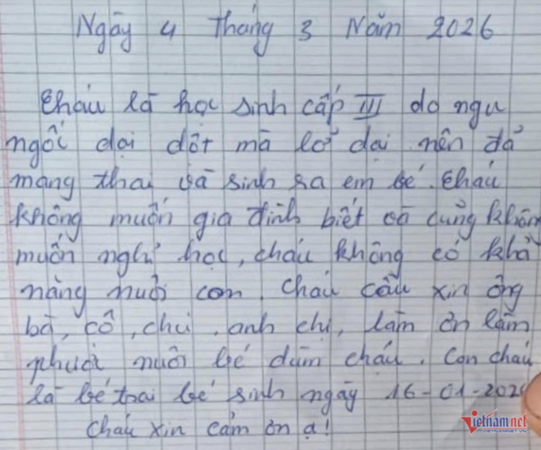 Ngày 4 Tháng 3 Năm 2026
Cháu là học sinh cấp III do ngu
ngốc dại dột mà lỡ dại nên đã
mang thai và sinh ra em bé. Cháu
không muốn gia đình biết và cũng khôn
muốn nghỉ học, cháu không có khả
năng nuôi con. Cháu cầu xin ông
bà, cô, chú, anh chị, làm ơn làm
phước nuôi bé dùm cháu. Con cháu
là bé trai bé sinh ngày 16-01-202
Cháu xin cảm ơn ạ!
vietnamnet